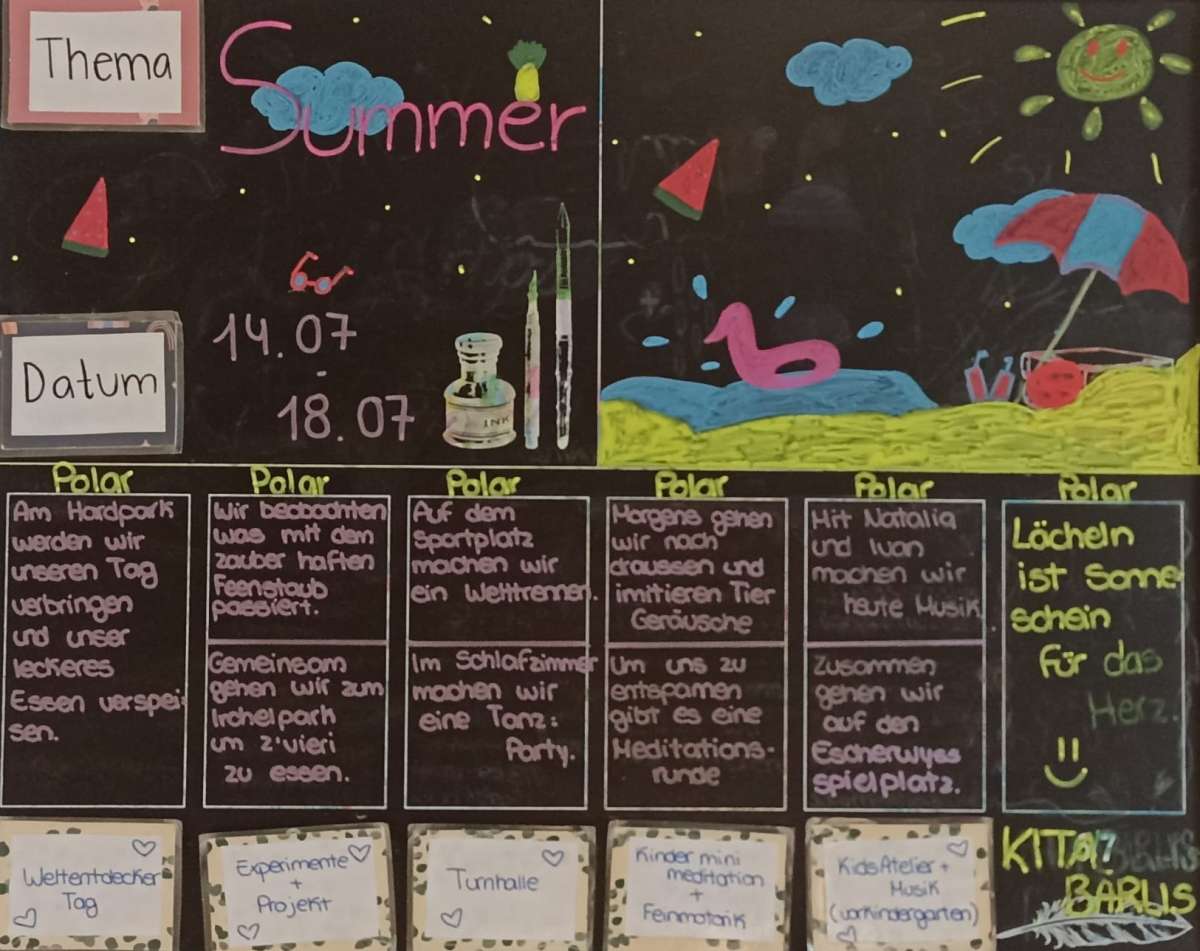 Thema
Summer
Datum
14.07
-
18.07
INK
Polar
Am Hardpark
werden wir
unseren Tag
verbringen
und unser
leckeres
Essen verspei
sen.
Polar
Wir beobachten
was mit dem
zauber haften
Feenstaub
passiert.
Gemeinsam
gehen wir zum
Irchelpark
um z'vieri
zu essen.
Polar
Auf dem
Sportplatz
machen wir
ein Wettrennen.
Im Schlafzimmer
machen wir
eine Tanz:
Party.
Polar
Morgens gehen
wir nach
draussen und
imitieren Tier
Geräusche
Um uns zu
entspannen
gibt es eine
Meditations-
runde
Polar
Mit Natalia
und Ivan
machen wir
heute Musik.
Zusammen
gehen wir
auf den
Escherwyss
spielplatz.
Polar
Lächeln
ist Sonne
schein
für das
Herz.
Weltentdecker
Tag
Experimente
+
Projekt
Turnhalle
Kinder mini
meditation
+
Feinmotorik
KidsAtelier +
Musik
(vorkindergarten)
KITA
BARLIS